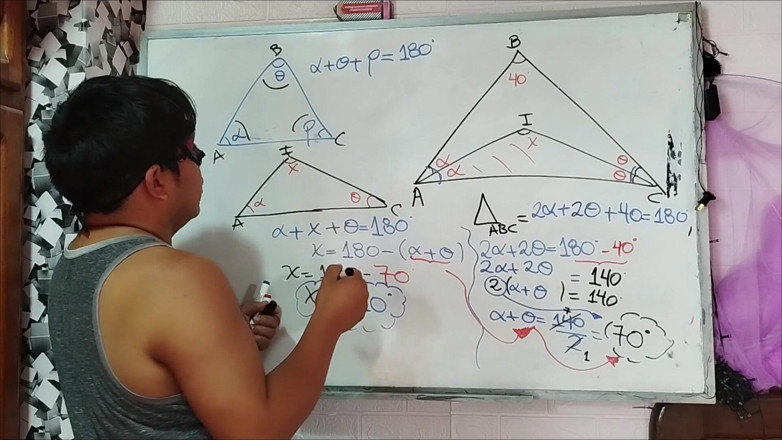 B
θ
α
ρ
A
C
α+θ+ρ=180°
I
x
α
θ
A
C
α+x+θ=180°
x=180-(α+θ)
70
B
40°
I
x
α
α
θ
θ
A
C
ABC = 2α+2θ+40=180°
2α+2θ=180°-40°
2α+2θ = 140°
2(α+θ)=140°
α+θ=140/2=70°
1